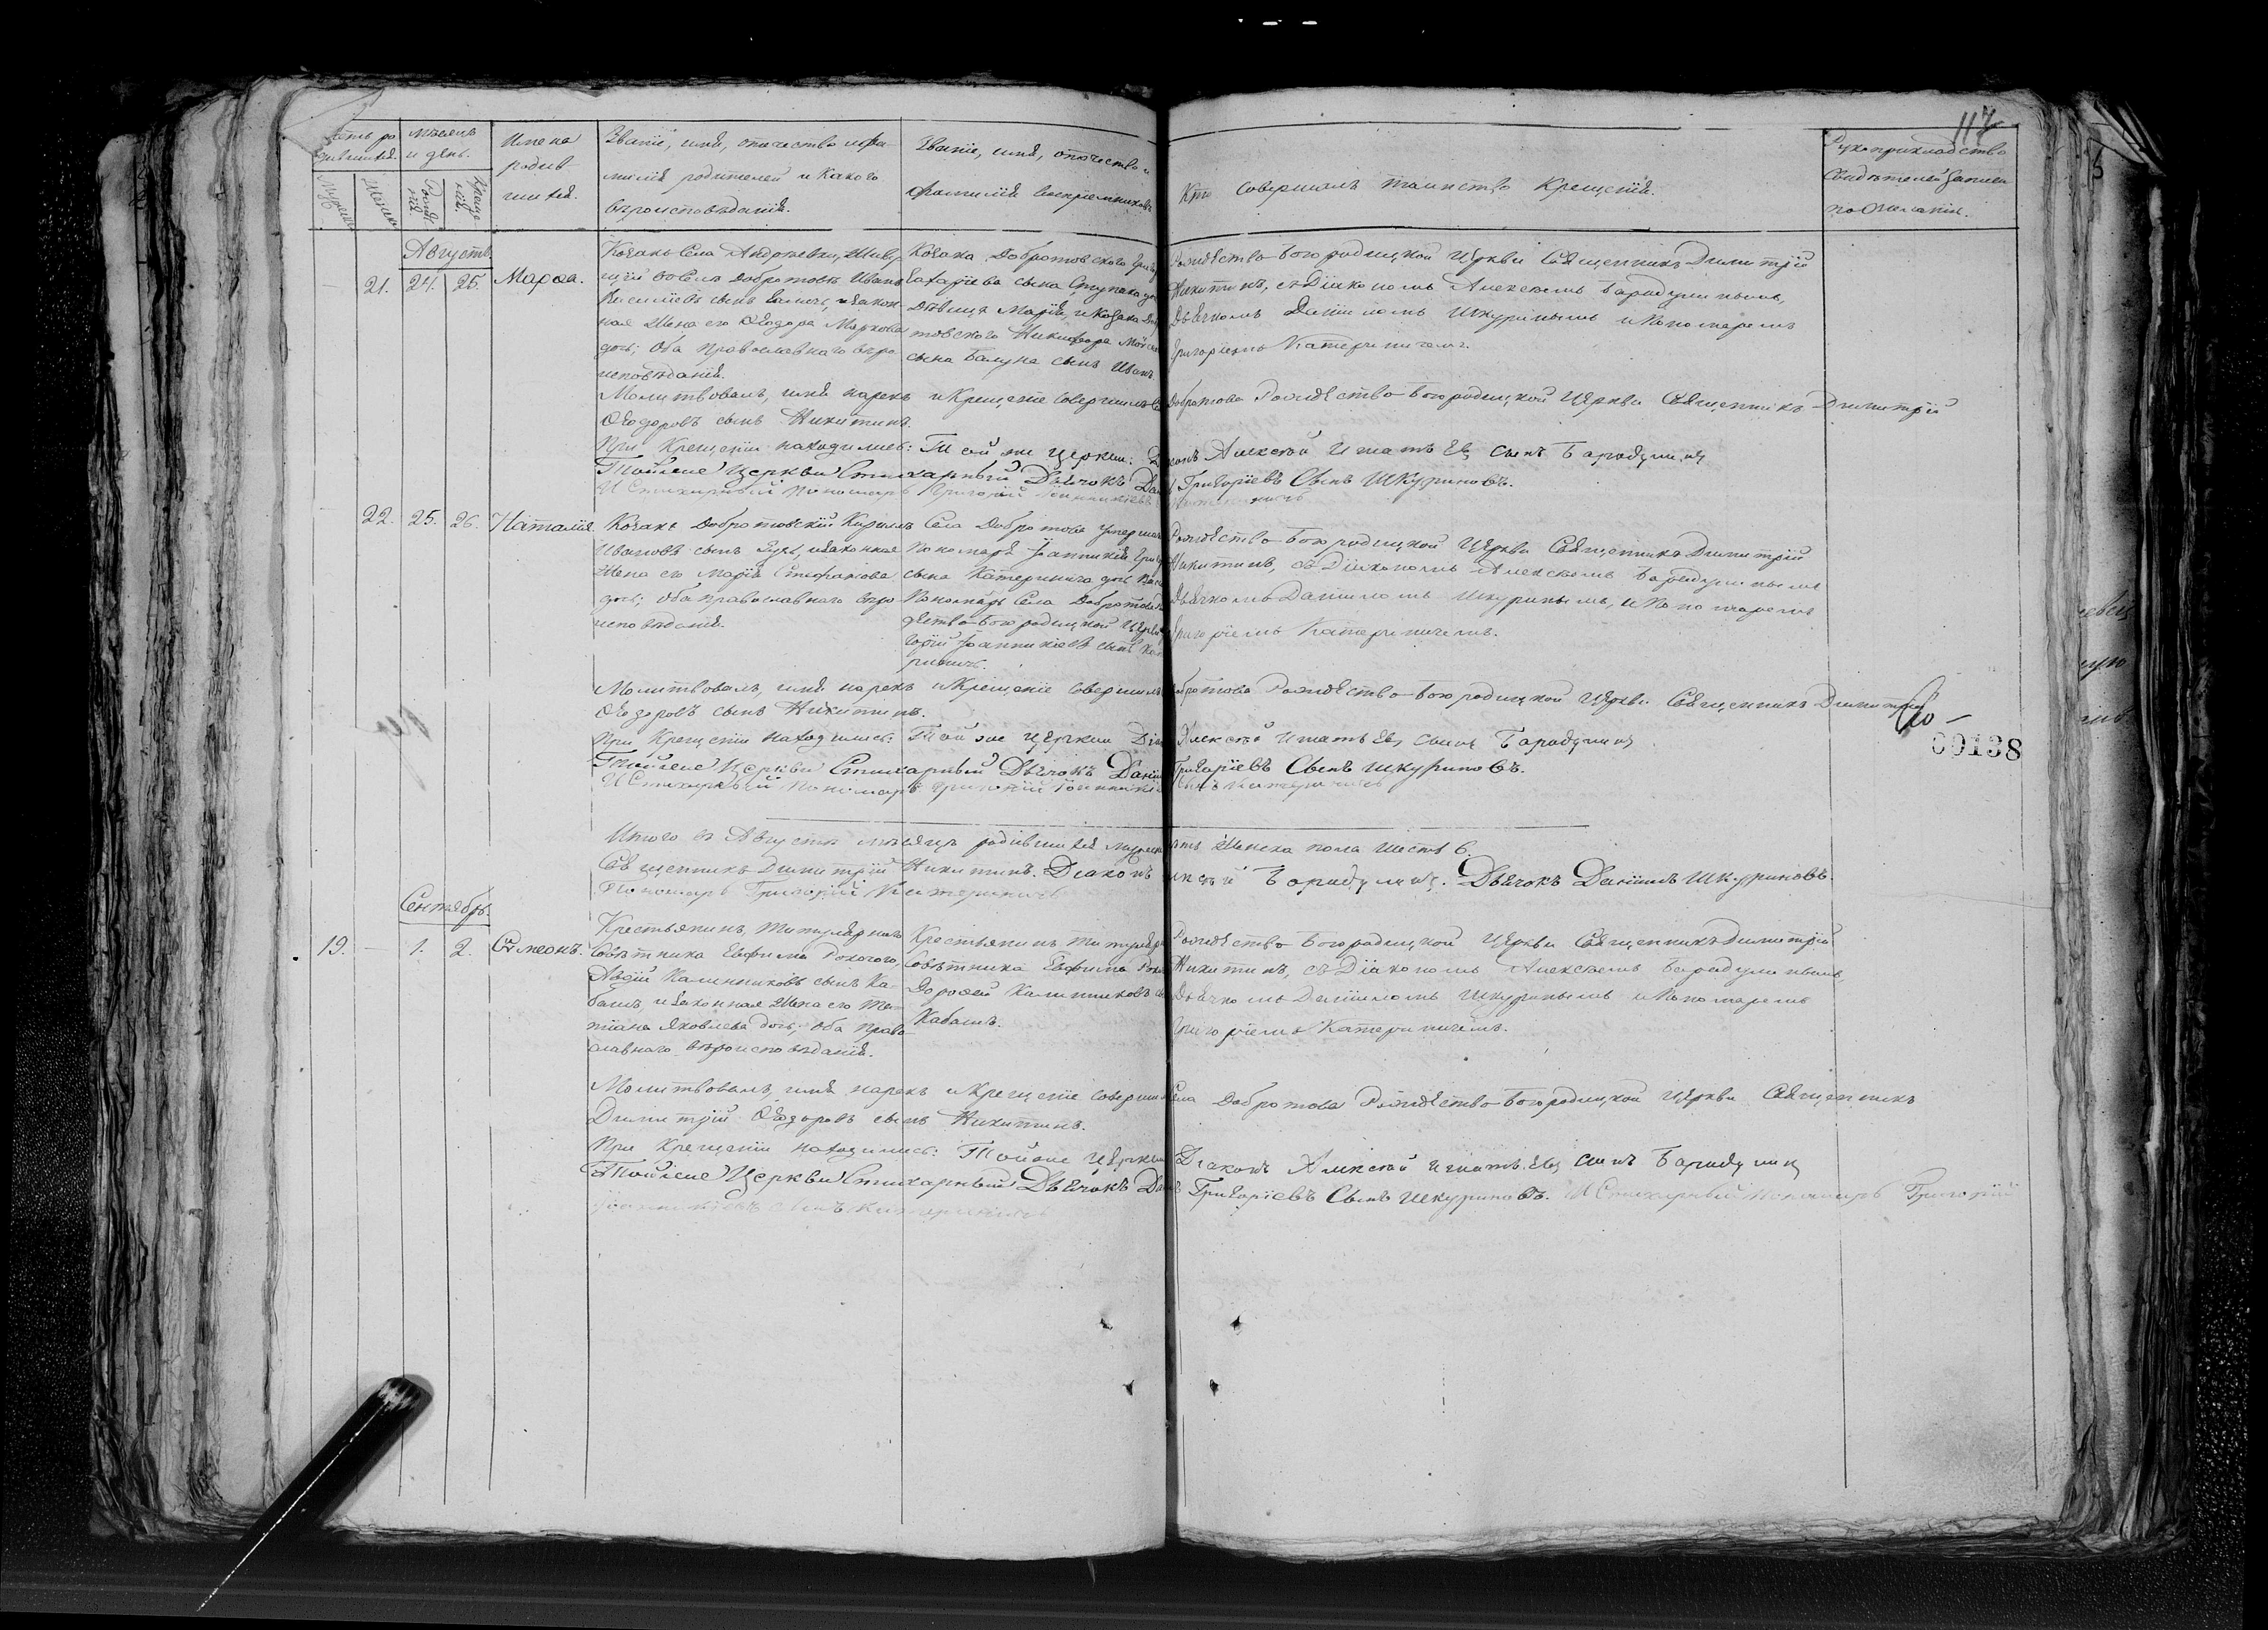 117
Счетъ родившихся.
Мѣсяцъ и день.
Имена родившихся.
Званіе, имя, отечество и фамилія родителей и какого вѣроисповѣданія.
Званіе, имя, отечество и фамилія воспріемниковъ
Кто совершалъ таинство Крещенія.
Рукоприкладство свидѣтелей записи по желанію.
Мужеска
Женска
Рожденія
Крещенія.
Августъ.
21. 24. 25. Марѳа.
Козакъ Села Андреевки, живу-
щій въ Селѣ Добротовѣ Иванъ
Василіевъ сынъ и закон-
ная жена его Ѳеодора Маркова
дочь; Оба православнаго вѣро
исповѣданія.
Козака Добротовскаго
Захаріева сына
Дѣвица Марія, и Козака
товского Никифора
сына сынъ Иванъ.
Рождество-Богородицкой Церкви Священникъ Димитрій
Никитинъ, съ Діакономъ Алексѣемъ Барадулинымъ,
Дьячкомъ Даніиломъ Шкуринымъ и Пономаремъ
Григоріемъ Катериничемъ.
Молитвовалъ, имя нарекъ и Крещеніе совершилъ Добротова Рождество-Богородицкой Церкви Священникъ Димитрій
Ѳеодоровъ сынъ Никитинъ.
При Крещеніи находились: Той же Церкви Алексѣй Игнатьевъ сынъ Барадулинъ
Тойжеже Церкви Стихарный Дьячокъ Григоріевъ Сынъ Шкуриновъ.
И Стихарный Пономарь Григорій Іоанникіевъ
22. 25. 26. Наталія.
Козакъ Добротовскій Кириллъ
Ивановъ сынъ и законная
жена его Марія Стефанова
дочь; Оба православнаго вѣро
исповѣданія.
Села Добротова
Пономаря Іоанникія
сына Катеринича дочь
Пономарь Села Добротова
дество-Богородицкой Церкви
горій Іоанникіевъ сынъ Кате
риничъ.
Рождество-Богородицкой Церкви Священникъ Димитрій
Никитинъ, съ Діакономъ Алексѣемъ Барадулинымъ
Дьячкомъ Даніиломъ Шкуринымъ, и Пономаремъ
Григоріемъ Катериничемъ.
Молитвовалъ, имя нарекъ и Крещеніе совершилъ Добротова Рождество-Богородицкой Церкви Священникъ Димитрій
Ѳеодоровъ сынъ Никитинъ.
При Крещеніи находились: Той же Церкви Алексѣй Игнатьевъ сынъ Барадулинъ
Тойжеже Церкви Стихарный Дьячокъ Даніилъ Григоріевъ Сынъ Шкуриновъ.
И Стихарный Пономарь Григорій сынъ Катериничъ
00138
Итого въ Августѣ мѣсяцѣ родившихся мужеска Женска пола шесть 6.
Священникъ Димитрій Никитинъ. Діаконъ Барадулинъ. Дьячокъ Даніилъ Шкуриновъ.
Пономарь Григорій Катериничъ
Сентябрь.
19. 1. 2. Сѵмеонъ.
Крестьянинъ, Титулярнаго
Совѣтника Евфима
Калинниковъ сынъ Ка-
башъ, и законная жена его Та-
тіана Яковлева дочь; Оба право
славнаго вѣроисповѣданія.
Крестьянинъ Титулярн
Совѣтника Евфима
Дороѳей Калинниковъ
Кабашъ.
Рождество-Богородицкой Церкви Священникъ Димитрій
Никитинъ, съ Діакономъ Алексѣемъ Барадулинымъ,
Дьячкомъ Даніиломъ Шкуринымъ и Пономаремъ
Григоріемъ Катериничемъ.
Молитвовалъ, имя нарекъ и Крещеніе совершилъ Села Добротова Рождество-Богородицкой Церкви Священникъ
Димитрій Ѳеодоровъ сынъ Никитинъ.
При Крещеніи находились: Тойже Церкви Діаконъ Алексѣй Игнатьевъ сынъ Барадулинъ
Тойжеже Церкви Стихарный Дьячокъ Григоріевъ Сынъ Шкуриновъ. И Стихарный Пономарь Григорій
Іоанникіевъ сынъ Катериничъ